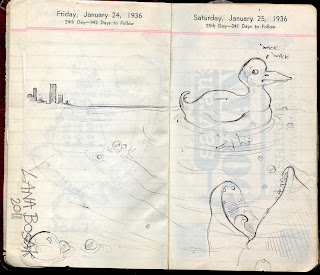 Friday, January 24, 1936
24th Day—342 Days to Follow
LANA BOSAK
2011
Saturday, January 25, 1936
25th Day—341 Days to Follow